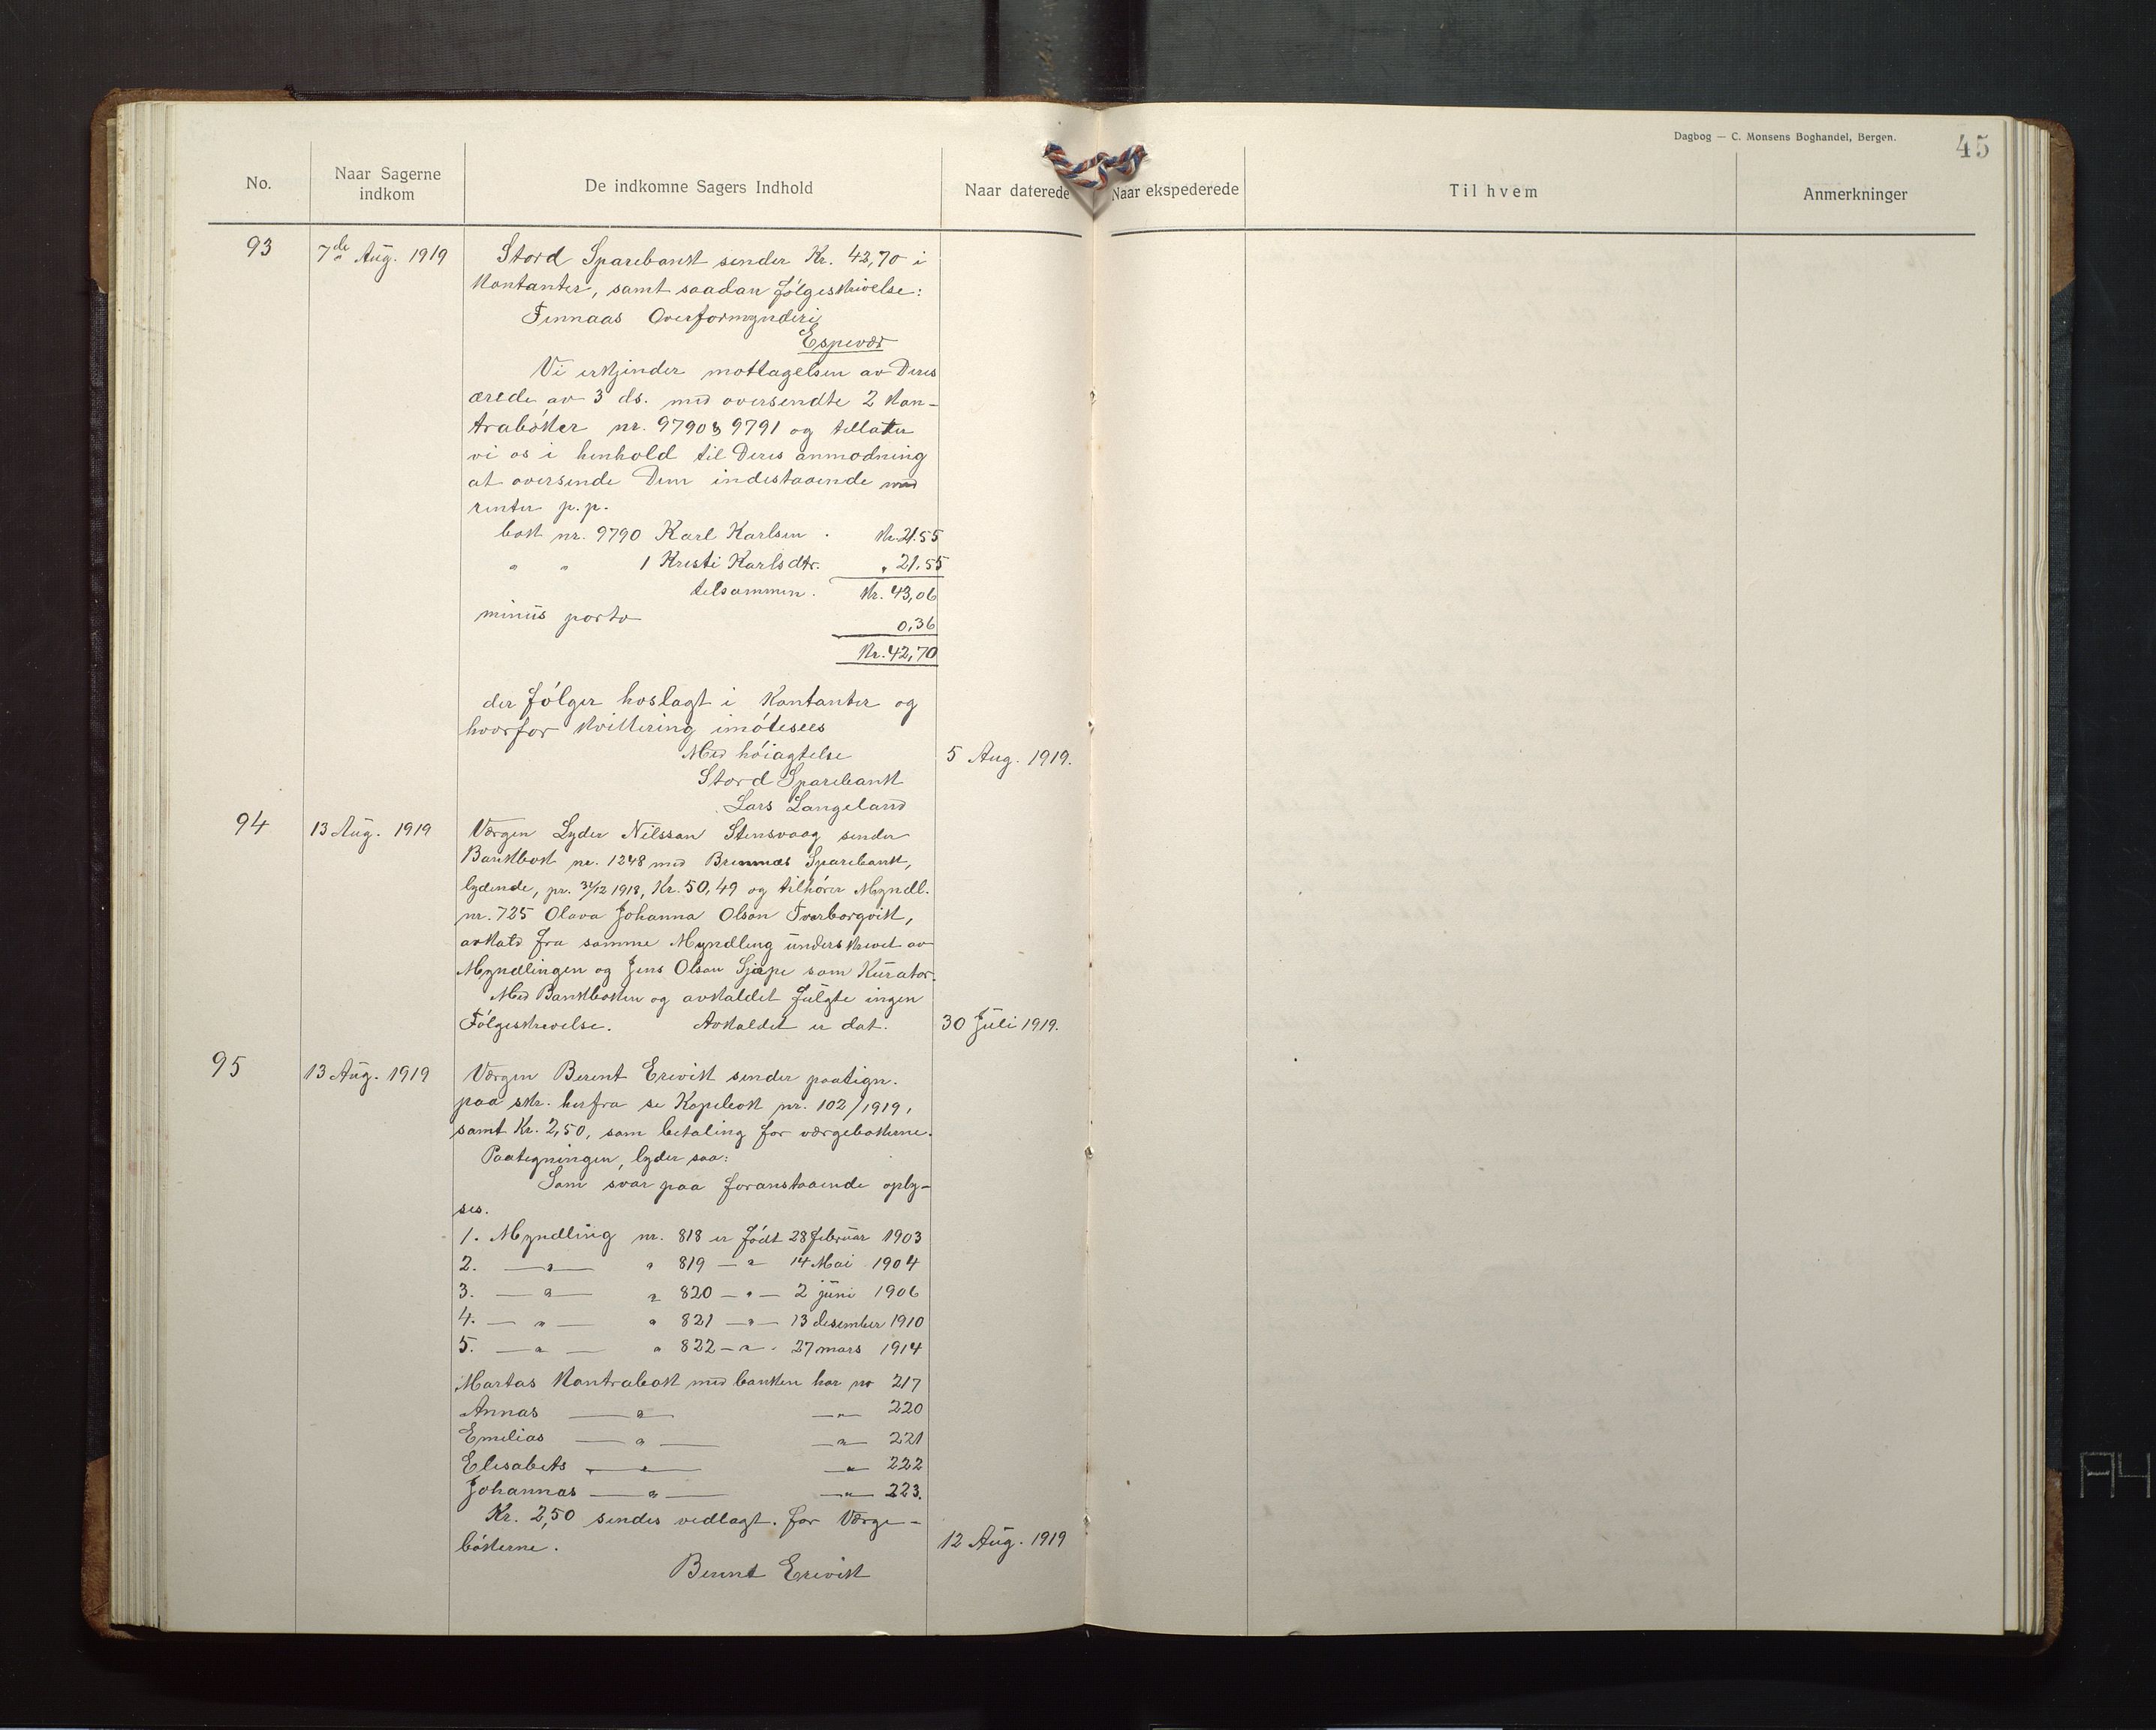 Dagbog — C. Monsens Boghandel, Bergen.
45
No.
Naar Sagerne indkom
De indkomne Sagers Indhold
Naar daterede
Naar ekspederede
Til hvem
Anmerkninger
93 7de Aug. 1919 Stord Sparebank sender Kr. 42,70 i
kontanter, samt saadan følgeskrivelse:
Finnaas Overformynderi,
Espevær
Vi erkjender mottagelsen av Deres
ærede av 3 ds. med oversendte 2 kon-
trabøker nr. 9790 & 9791 og tillater
vi os i henhold til Deres anmodning
at oversende Dem indestaaende med
renter p.p.
bok nr. 9790 Karl Karlsen . Kr. 21.55
" " 1 Kristi Karlsdtr. " 21.55
tilsammen . Kr. 43,06
minus porto 0,36
Kr. 42,70
der følger hoslagt i kontanter og
hvorfor kvittering imøtesees
Med høiagtelse 5 Aug. 1919.
Stord Sparebank
Lars Langeland
94 13 Aug. 1919 Værgen Lyder Nilssan Stensvaag sender
Bankbok nr. 1248 med Bremnes Sparebank,
lydende, pr. 31/12 1918, Kr. 50,49 og tilhører Myndl.
nr. 725 Olava Johanna Olson Tverborgvik,
avkald fra samme Myndling underskrevet av
Myndlingen og Jens Olson Sjæpe som Kurator.
Med Bankboken og avkaldet fulgte ingen
Følgeskrivelse. Avkaldet er dat. 30 Juli 1919.
95 13 Aug. 1919 Værgen Berent Erevik sender paatign.
paa skr. herfra se Kopibok nr. 102/1919,
samt Kr. 2,50, som betaling for værgebøkerne.
Paategningen, lyder saa:
Som svar paa foranstaaende oply-
ses.
1. Myndling nr. 818 er født 28 februar 1903
2. — " — " 819 — " 14 Mai 1904
3. — " — " 820 — " — 2 juni 1906
4. — " — " 821 — " — 13 desember 1910
5. — " — " 822 — " - 27 mars 1914
Martas kontrabok med banken har nr 217
Annas — " — — " — 220
Emilias — " — — " — 221
Elisabets — " — — " — 222
Johannas — " — — " — 223.
Kr. 2,50 sendes vedlagt. for Værge-
bøkerne. 12 Aug. 1919
Bernt Erevik